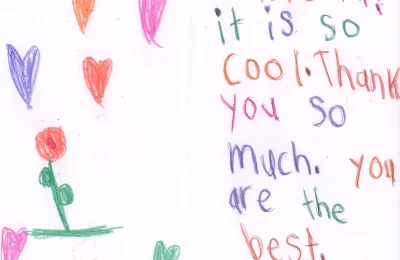 it is so
cool. Thank
you so
much. you
are the
best.